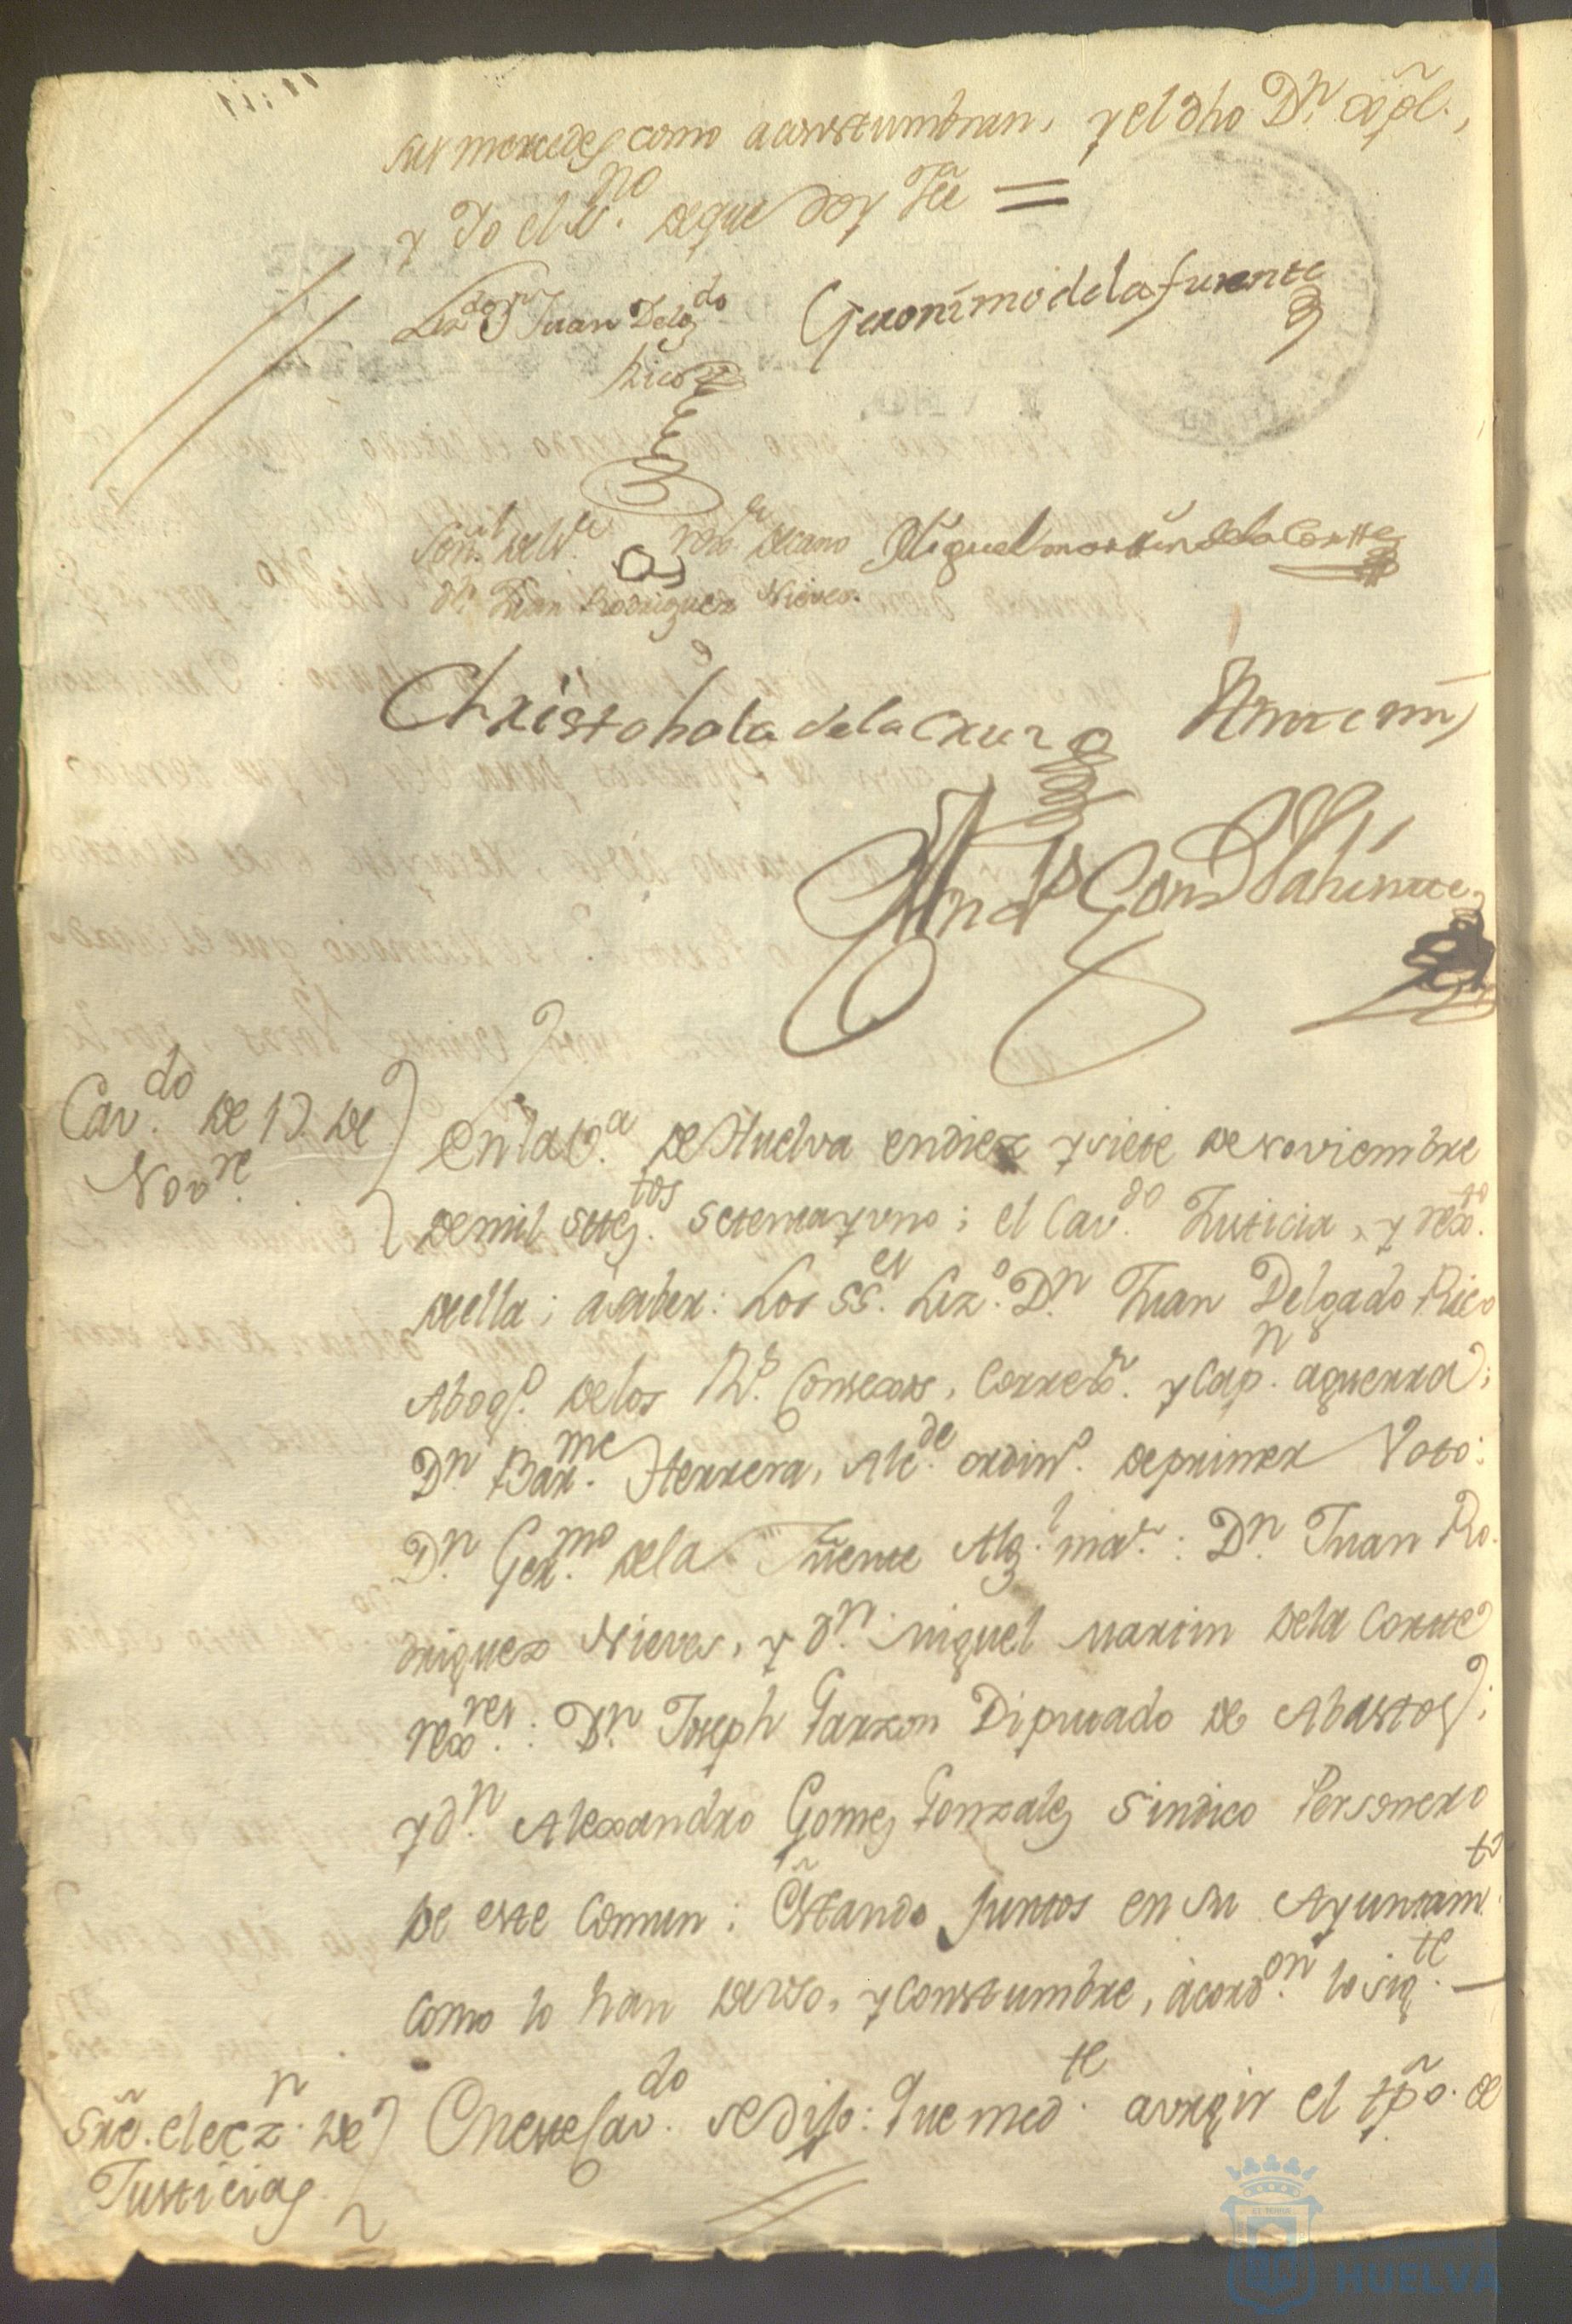 sus mercedes como acostumbran, y el dho Dn. Xptl.,
y Yo el ssno. de que doy fee =
Lizdo. Dn. Juan Delgdo.
Rico
Geronimo de la fuente
Señal de el Sr. rexor. decano
Dn. Juan Rodriguez Nieves.
Miguel martin de la Cortte
Christobal a de la Cruz
Ante mi,
Cavdo. de 17. de
Novre.
En la va. de Huelva en diez y siete de noviembre
de mil settestos. setenta y uno; el Cavdo. Justicia, y rexto.
de ella; à saver: Los SSes. Lizo. Dn. Juan Delgado Rico
Abogo. de los Rs. Consexos, Correxr. y Capn. aguerra;
Dn. Barme. Herrera, Alcde. ordino. de primer Voto:
Dn. Germo. de la Fuente Algl. mar.: Dn. Juan Ro-
driguez Nieves, y Dn. miguel martin de la Cortte
rexres.: Dn. Joseph Garzon Diputado de Abastos;
y Dn. Alexandro Gomez Gonzalez Sindico Personero
de este Comun: Estando juntos en su Ayuntamto.
como lo han de uso, y Constumbre, àcordon. lo sigte. —
Sre. eleczn. de
Justicias
En este Cavdo. se dijo: Que medte. a surgir el tpo. de
HUELVA